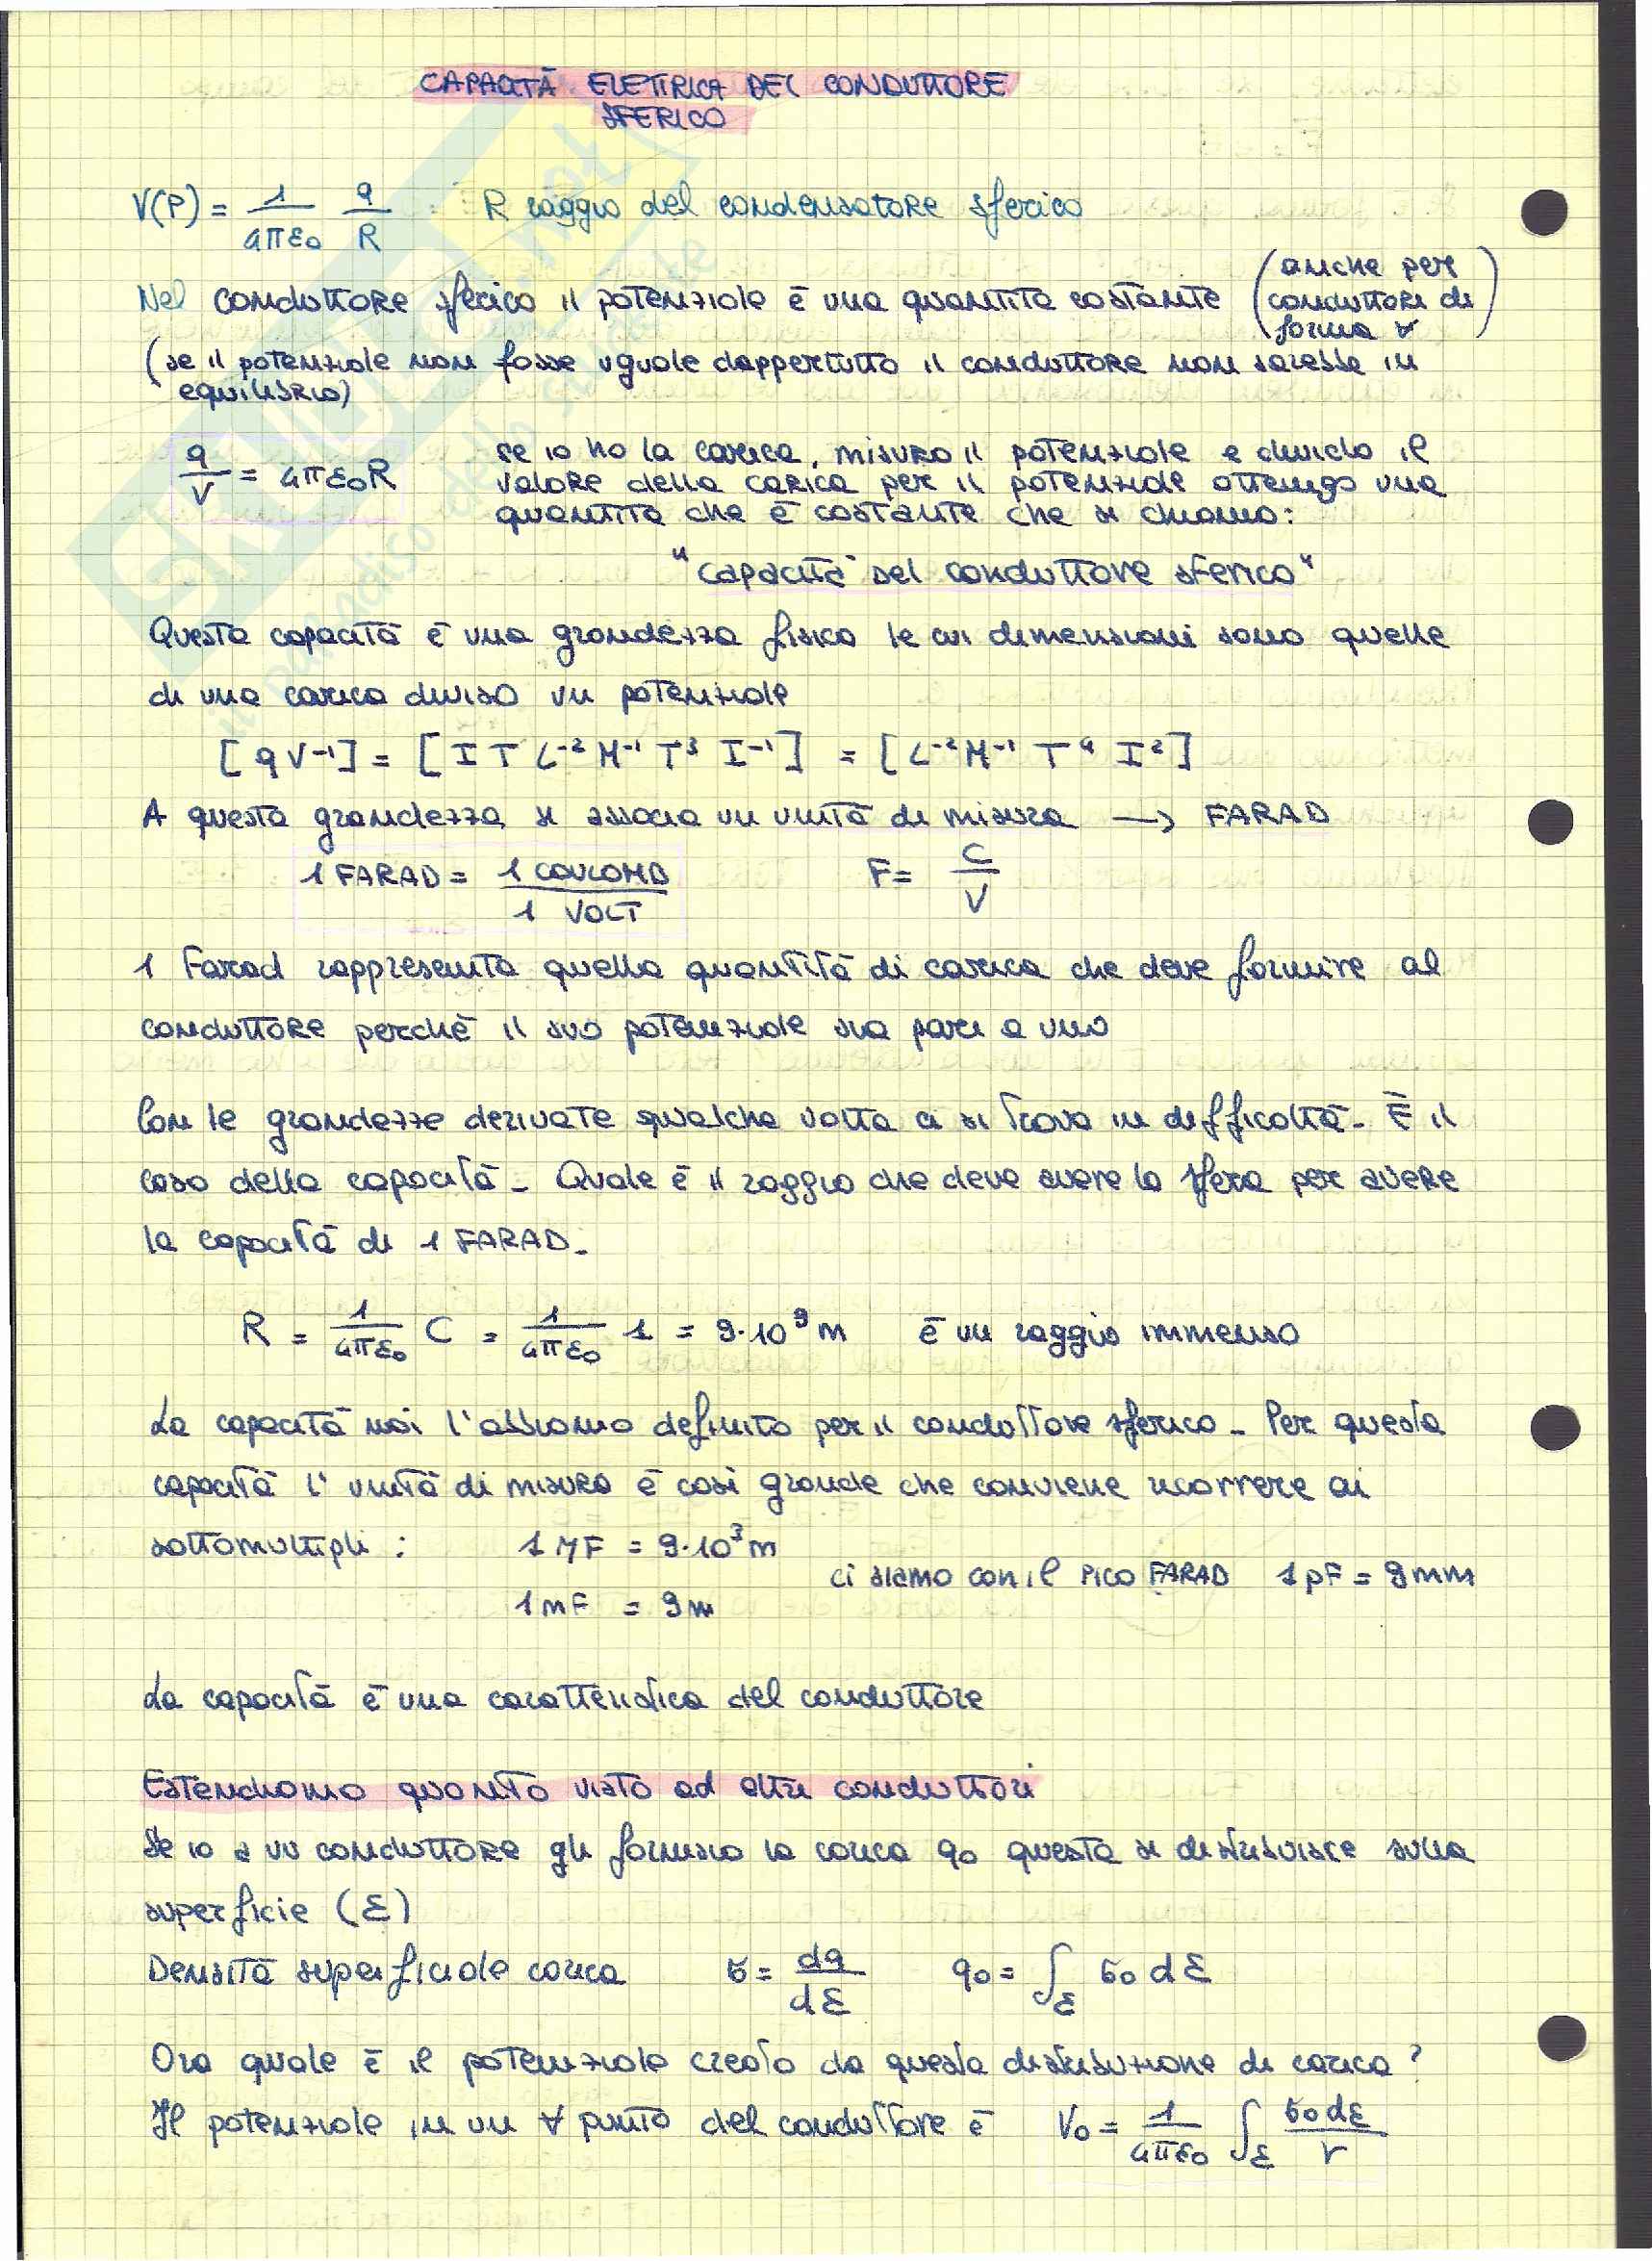 CAPACITÀ ELETTRICA DEL CONDUTTORE
SFERICO
V(P) = 1/4πε₀ q/R R raggio del condensatore sferico
Nel conduttore sferico il potenziale è una quantità costante (anche per conduttori di forma ∀)
(se il potenziale non fosse uguale dappertutto il conduttore non sarebbe in
equilibrio)
q/V = 4πε₀R
se io ho la carica, misuro il potenziale e divido il
valore della carica per il potenziale ottengo una
quantità che è costante che si chiama:
"capacità del conduttore sferico"
Questa capacità è una grandezza fisica le cui dimensioni sono quelle
di una carica diviso un potenziale
[qV⁻¹] = [I T L⁻² M⁻¹ T³ I⁻¹] = [L⁻² M⁻¹ T⁴ I²]
A questa grandezza si associa un unità di misura → FARAD
1 FARAD = 1 COULOMB / 1 VOLT F = C/V
1 Farad rappresenta quella quantità di carica che deve fornire al
conduttore perchè il suo potenziale sia pari a uno
Con le grandezze derivate qualche volta ci si trova in difficoltà. È il
caso della capacità. Quale è il raggio che deve avere la sfera per avere
la capacità di 1 FARAD.
R = 1/4πε₀ C = 1/4πε₀ 1 = 9·10⁹ m è un raggio immenso
La capacità noi l'abbiamo definito per il conduttore sferico. Per questa
capacità l'unità di misura è così grande che conviene ricorrere ai
sottomultipli: 1 μF = 9·10³ m
1 nF = 9 m
ci siamo con il PICO FARAD 1 pF = 9 mm
La capacità è una caratteristica del conduttore
Estendiamo quanto visto ad altri conduttori
Se io a un conduttore gli fornisco la carica q₀ questa si distribuisce sulla
superficie (Σ)
Densità superficiale carica σ = dq/dΣ q₀ = ∫Σ σ₀ dΣ
Ora quale è il potenziale creato da questa distribuzione di carica?
Il potenziale in un ∀ punto del conduttore è V₀ = 1/4πε₀ ∫Σ σ₀dΣ/r